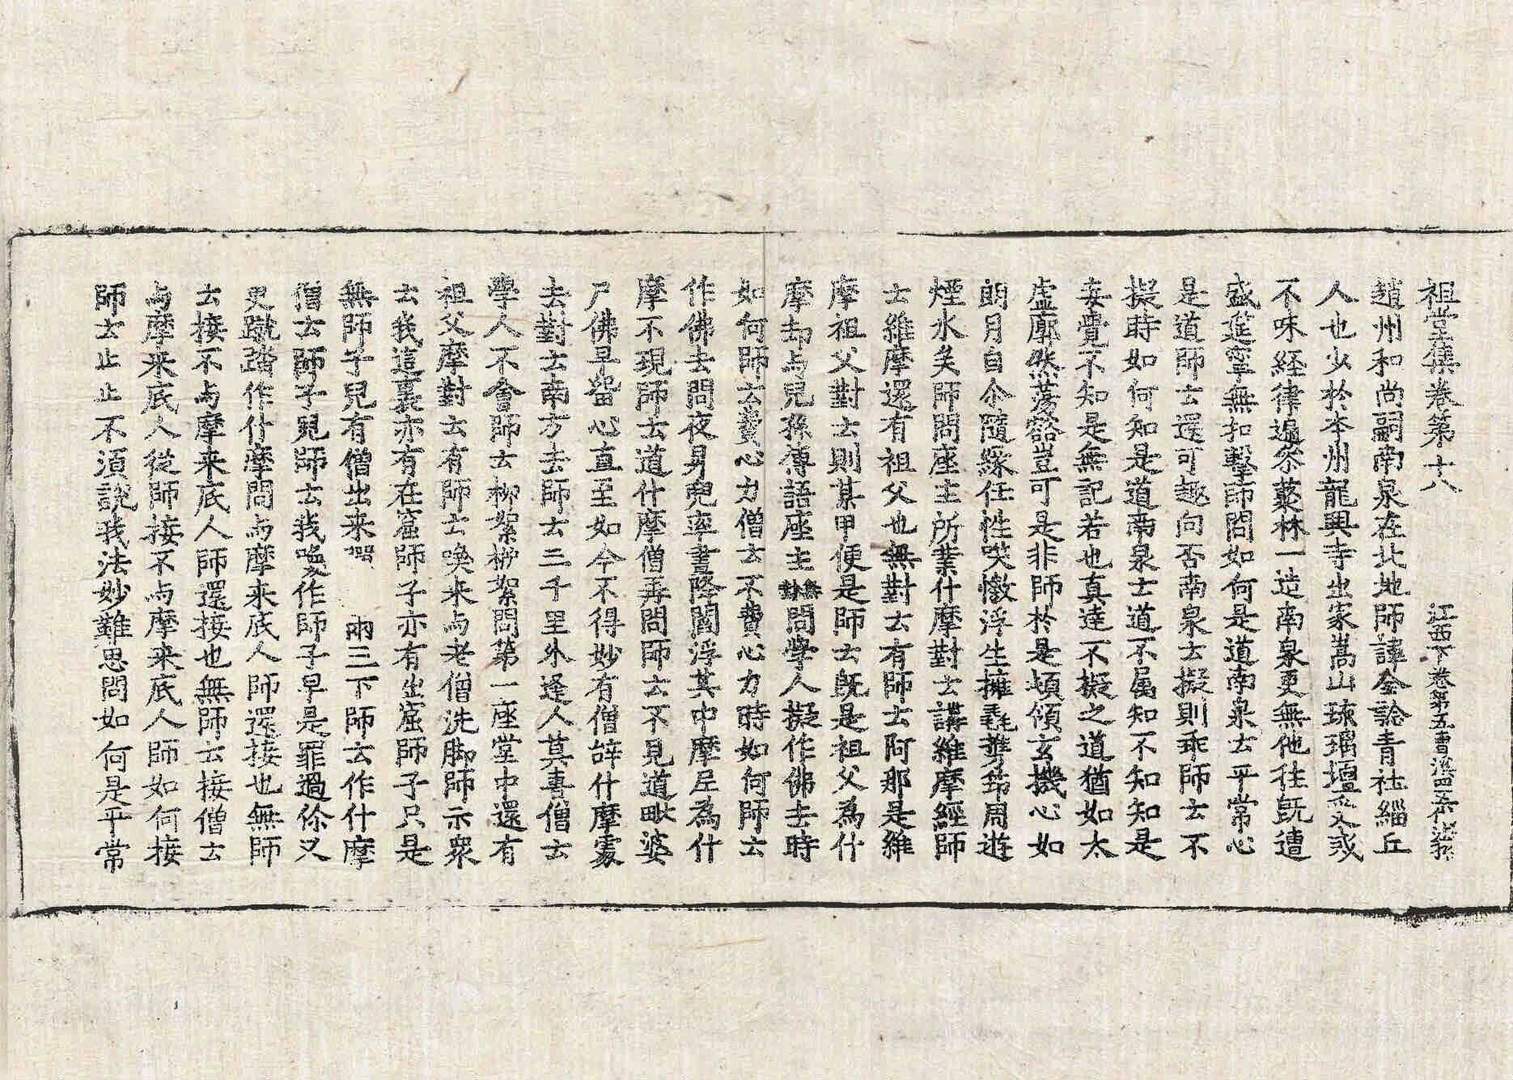 祖堂集卷第十八 江西下卷第五曹溪四五代法孫
趙州和尚嗣南泉在北地師諱全諗青社緇丘
人也少於本州龍興寺出家嵩山琉璃壇受戒
不味經律遍叅藂林一造南泉更無他往既遭
盛筵寧無扣擊師問如何是道南泉云平常心
是道師云還可趣向否南泉云擬則乖師云不
擬時如何知是道南泉云道不属知不知知是
妄覺不知是無記若也真達不擬之道猶如太
虛廓然蕩豁豈可是非師於是頓領玄機心如
朗月自尒隨緣任性笑懒浮生擁毳携笻周遊
煙水矣師問座主所業什摩對云講維摩經師
云維摩還有祖父也無對云有師云阿那是維
摩祖父對云則某甲便是師云既是祖父為什
摩却与兒孫傳語座主無對問學人擬作佛去時
如何師云費心力僧云不費心力時如何師云
作佛去問夜昇兜率晝降閻浮其中摩尼為什
摩不現師云道什摩僧再問師云不見道毗婆
尸佛早留心直至如今不得妙有僧辝什摩處
去對云南方去師云三千里外逢人莫喜僧云
學人不會師云柳絮柳絮問第一座堂中還有
祖父摩對云有師云喚来与老僧洗脚師示衆
云我這裏亦有在窟師子亦有出窟師子只是
無師子兒有僧出来 兩三下師云作什摩
僧云師子兒師云我喚作師子早是罪過你又
更蹴踏作什摩問与摩来底人師還接也無師
云接不与摩来底人師還接也無師云接僧云
与摩来底人從師接不与摩来底人師如何接
師云止止不須說我法妙難思問如何是平常